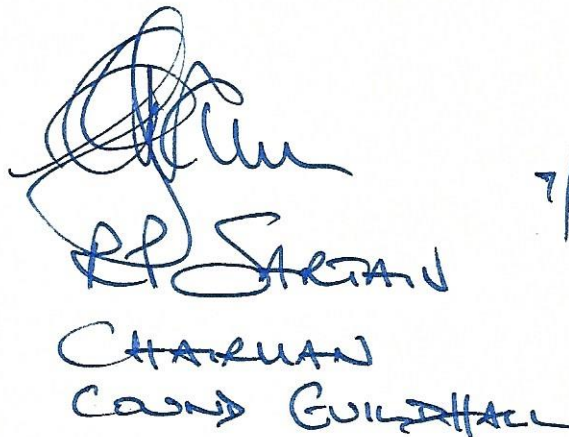 7/
RP SARTAIN
CHAIRMAN
COUND GUILDHALL